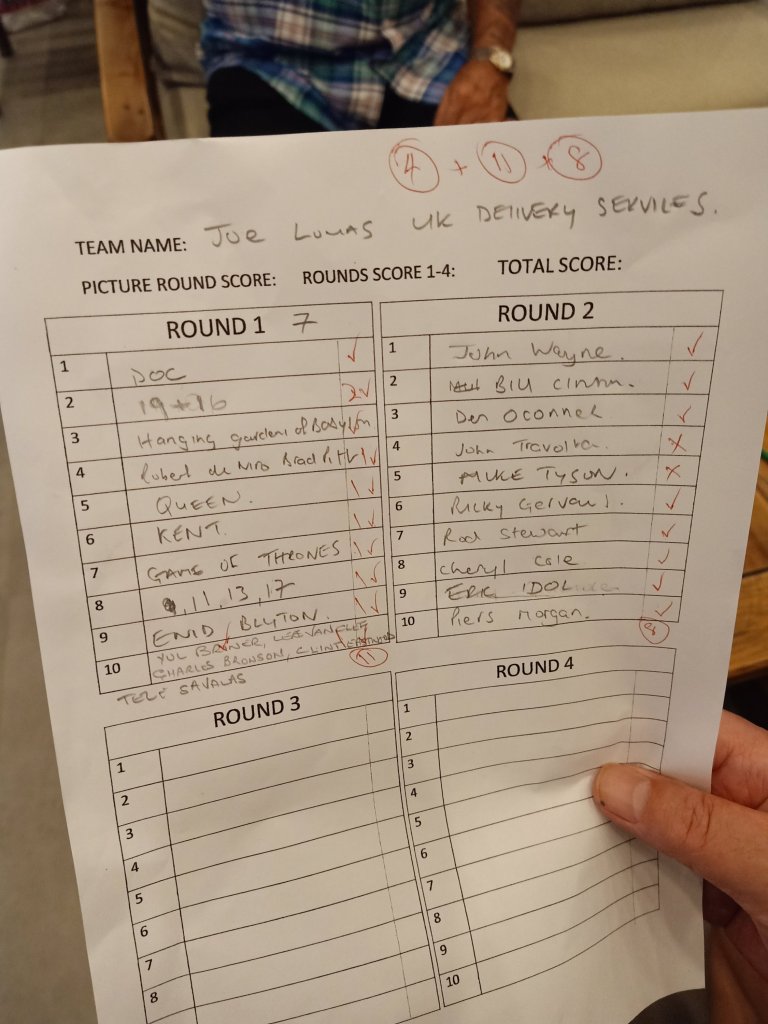 4 + 11 + 8
TEAM NAME: JOE LUMAS UK DELIVERY SERVICES.
PICTURE ROUND SCORE: ROUNDS SCORE 1-4: TOTAL SCORE:
ROUND 1 7
1 DOC
2 19+16 2
3 Hanging gardens of Babylon
4 Robert de Niro Brad Pitt 1
5 QUEEN. 1
6 KENT. 1
7 GAME OF THRONES 1
8 11, 13, 17 1
9 ENID BLYTON. 1
10 YUL BRYNER, LEE VAN CLEEF
CHARLES BRONSON, CLINT EASTWOOD
11
TELE SAVALAS
ROUND 2
1 John Wayne.
2 Bill Clinton.
3 Des Oconnel
4 John Travolta.
5 MIKE TYSON.
6 Ricky Gervais.
7 Rod Stewart
8 Cheryl Cole
9 ERIC IDOL
10 Piers Morgan.
8
ROUND 3
1
2
3
4
5
6
7
8
ROUND 4
1
2
3
4
5
6
7
8
9
10